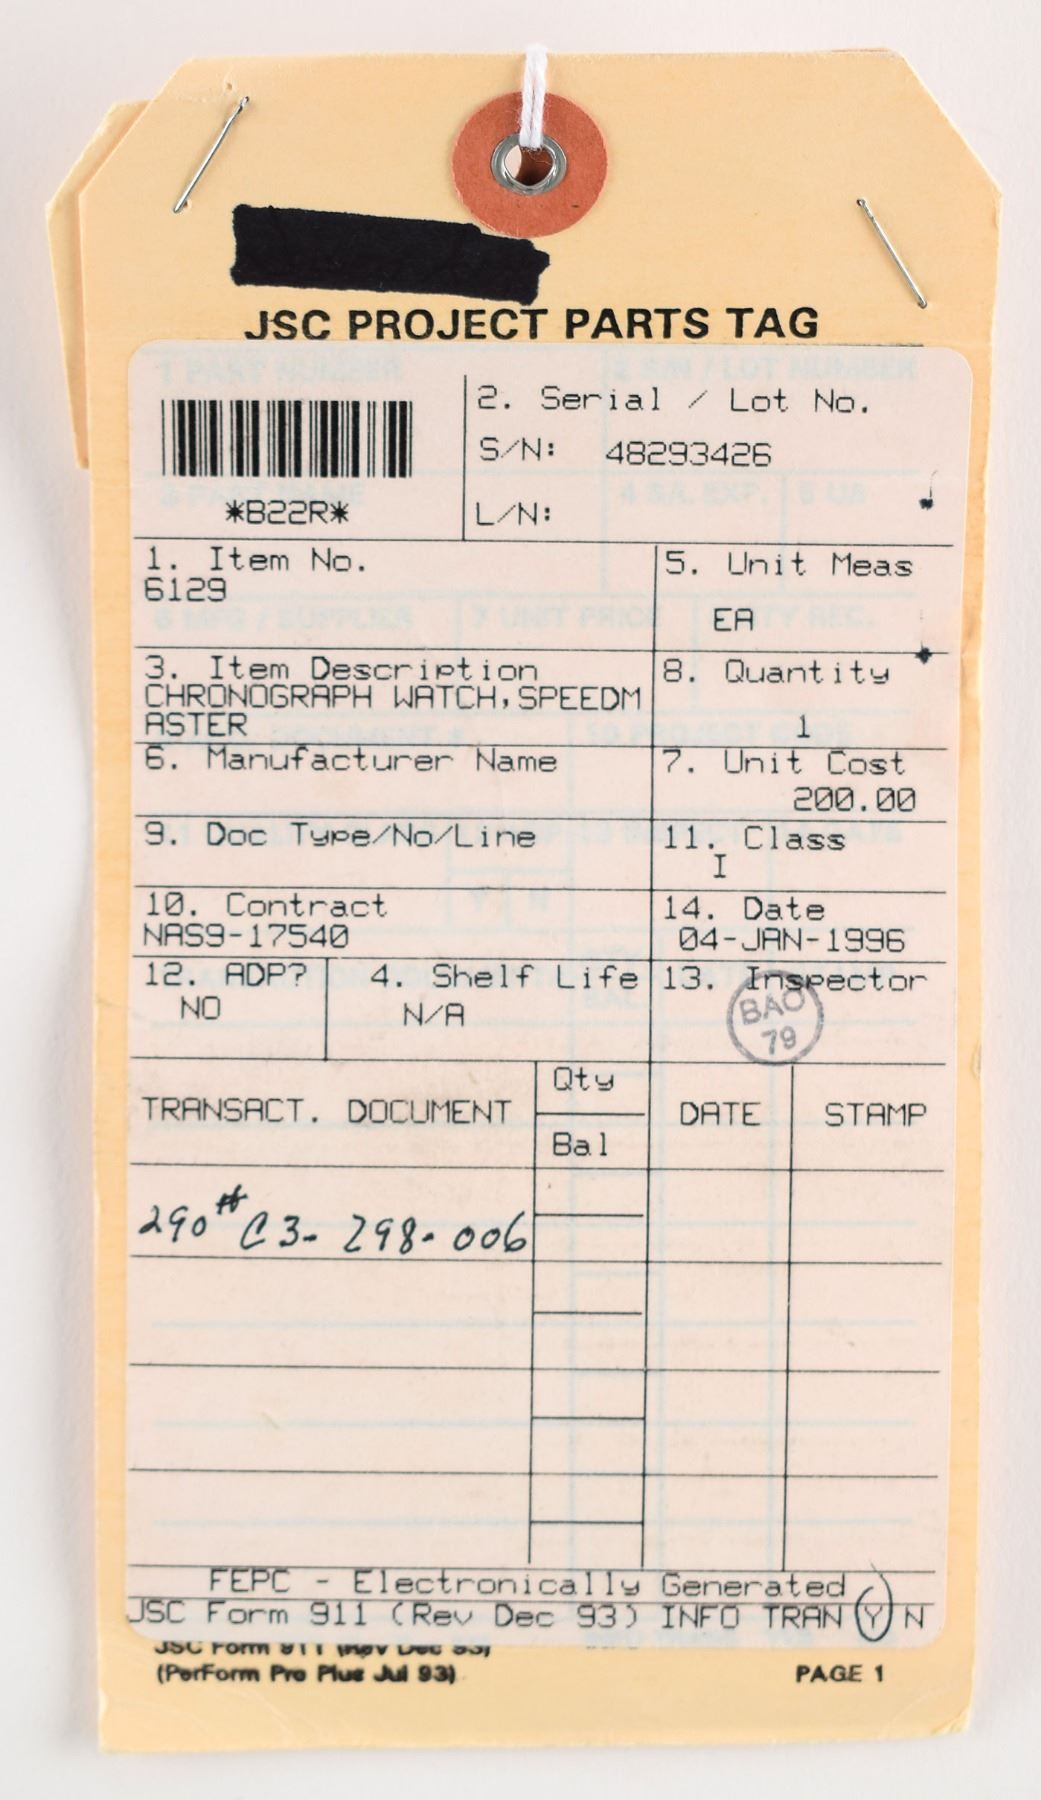 JSC PROJECT PARTS TAG
*B22R*
2. Serial / Lot No.
S/N: 48293426
L/N:
1. Item No.
6129
5. Unit Meas
EA
3. Item Description
CHRONOGRAPH WATCH,SPEEDM
ASTER
8. Quantity
1
6. Manufacturer Name
7. Unit Cost
200.00
9. Doc Type/No/Line
11. Class
I
10. Contract
NAS9-17540
14. Date
04-JAN-1996
12. ADP?
NO
4. Shelf Life
N/A
13. Inspector
BAO
79
TRANSACT. DOCUMENT
Qty
Bal
DATE
STAMP
290# C3-298-006
FEPC - Electronically Generated
JSC Form 911 (Rev Dec 93) INFO TRAN Y N
JSC Form 911 (Rev Dec 93)
(PerForm Pro Plus Jul 93)
PAGE 1